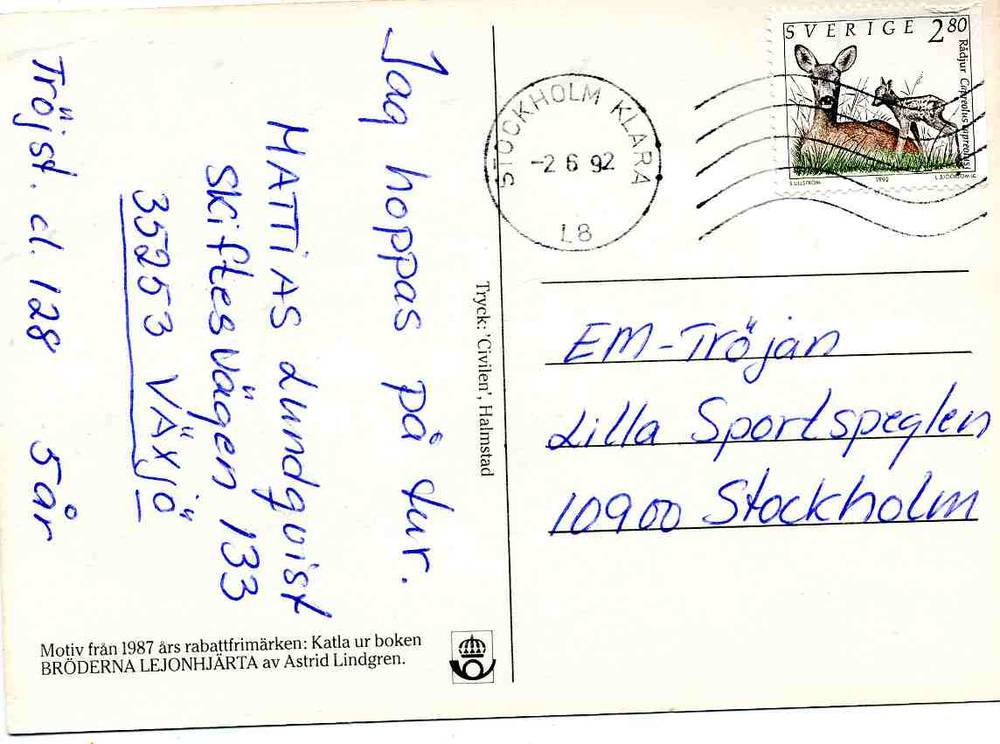 Jag hoppas på tur.
MATTIAS Lundqvist
Skiftesvägen 133
35253 VÄXJÖ
Tröjst. cl. 128 5 år
Motiv från 1987 års rabattfrimärken: Katla ur boken
BRÖDERNA LEJONHJÄRTA av Astrid Lindgren.
Tryck: 'Civilen', Halmstad
STOCKHOLM KLARA
-2 6 92
L8
SVERIGE 280
Rådjur Capreolus capreolus
1992
EM-Tröjan
Lilla Sportspeglen
10900 Stockholm